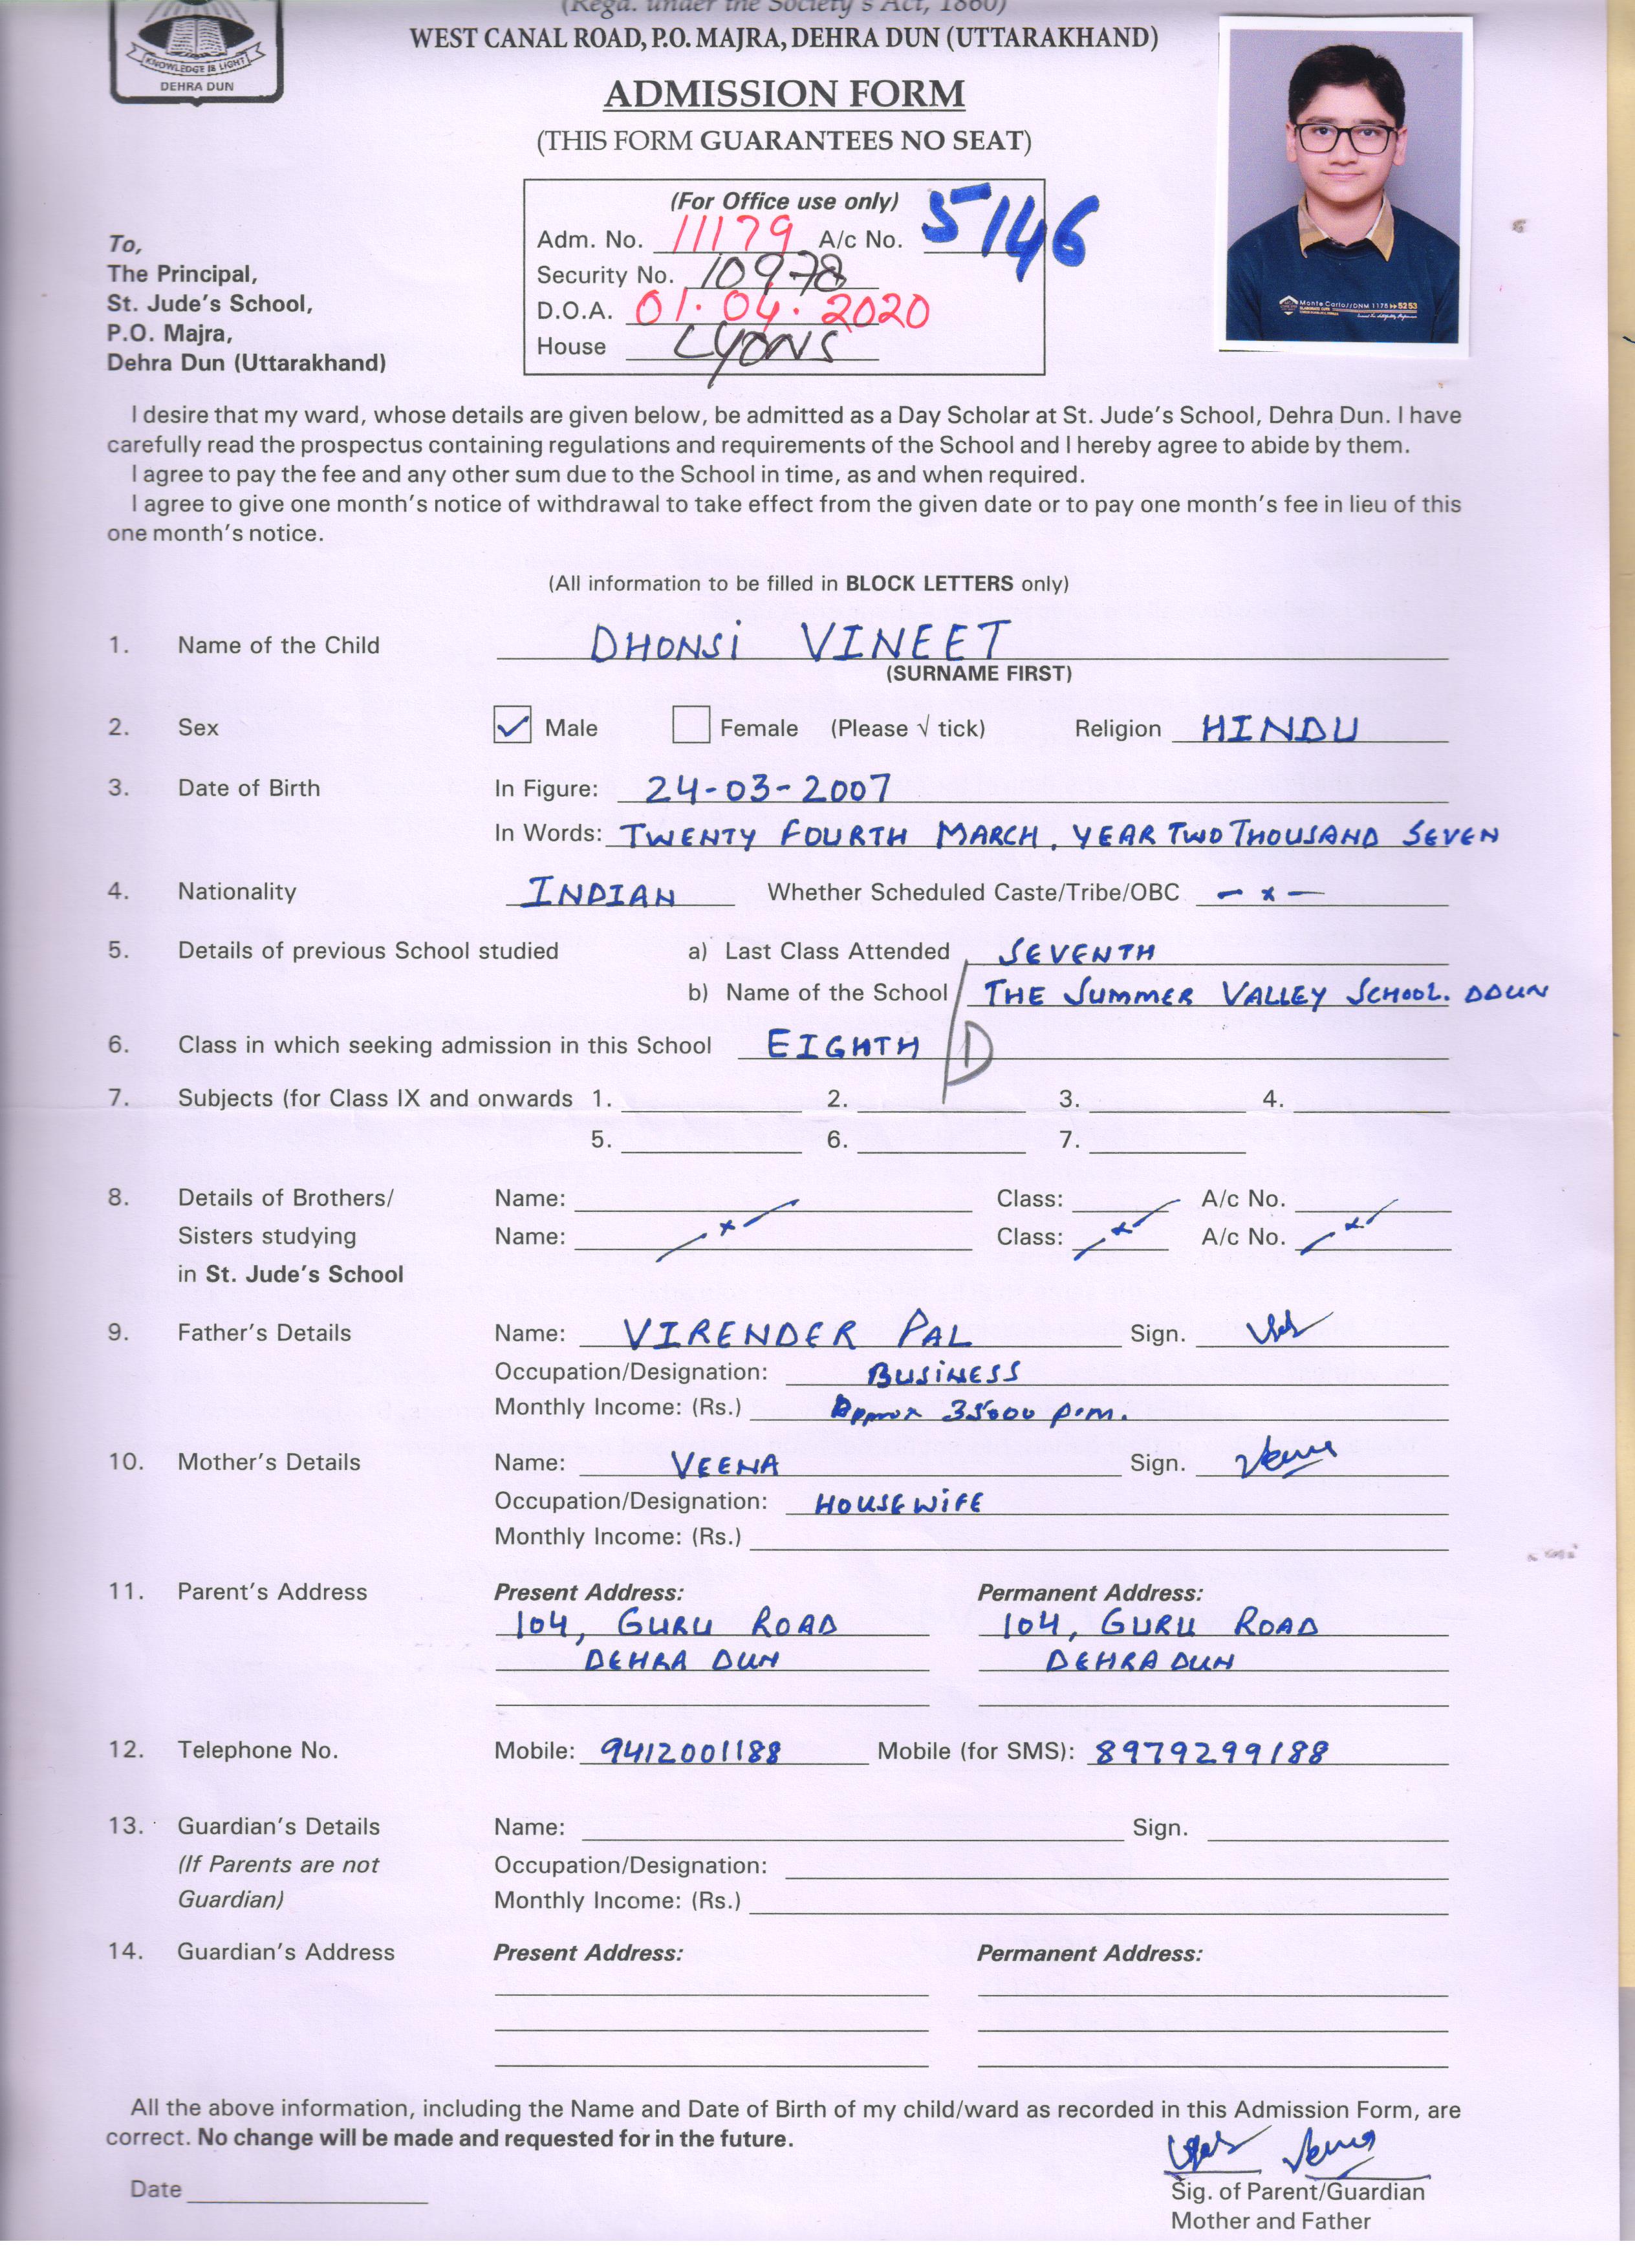 (Regd. under the Society's Act, 1860)
WEST CANAL ROAD, P.O. MAJRA, DEHRA DUN (UTTARAKHAND)
KNOWLEDGE IS LIGHT
DEHRA DUN
ADMISSION FORM
(THIS FORM GUARANTEES NO SEAT)
(For Office use only)
Adm. No. 11179 A/c No. 5146
Security No. 10978
D.O.A. 01.04.2020
House LYONS
To,
The Principal,
St. Jude's School,
P.O. Majra,
Dehra Dun (Uttarakhand)
Monte Carlo//DNM 1178 5253
I desire that my ward, whose details are given below, be admitted as a Day Scholar at St. Jude's School, Dehra Dun. I have
carefully read the prospectus containing regulations and requirements of the School and I hereby agree to abide by them.
I agree to pay the fee and any other sum due to the School in time, as and when required.
I agree to give one month's notice of withdrawal to take effect from the given date or to pay one month's fee in lieu of this
one month's notice.
(All information to be filled in BLOCK LETTERS only)
1. Name of the Child DHONSi VINEET
(SURNAME FIRST)
2. Sex ✓ Male Female (Please √ tick) Religion HINDU
3. Date of Birth In Figure: 24-03-2007
In Words: TWENTY FOURTH MARCH, YEAR TWO THOUSAND SEVEN
4. Nationality INDIAN Whether Scheduled Caste/Tribe/OBC — x —
5. Details of previous School studied a) Last Class Attended SEVENTH
b) Name of the School THE SUMMER VALLEY SCHOOL. DDUN
6. Class in which seeking admission in this School EIGHTH / D
7. Subjects (for Class IX and onwards 1. 2. 3. 4.
5. 6. 7.
8. Details of Brothers/ Name: Class: A/c No.
Sisters studying Name: — x — Class: — x — A/c No. — x —
in St. Jude's School
9. Father's Details Name: VIRENDER PAL Sign.
Occupation/Designation: BUSiNESS
Monthly Income: (Rs.) Approx 35000 p.m.
10. Mother's Details Name: VEENA Sign. Veena
Occupation/Designation: HOUSEWiFE
Monthly Income: (Rs.)
11. Parent's Address Present Address: Permanent Address:
104, GURU ROAD 104, GURU ROAD
DEHRA DUN DEHRA DUN
12. Telephone No. Mobile: 9412001188 Mobile (for SMS): 8979299188
13. Guardian's Details Name: Sign.
(If Parents are not Occupation/Designation:
Guardian) Monthly Income: (Rs.)
14. Guardian's Address Present Address: Permanent Address:
All the above information, including the Name and Date of Birth of my child/ward as recorded in this Admission Form, are
correct. No change will be made and requested for in the future.
Veena
Date Sig. of Parent/Guardian
Mother and Father